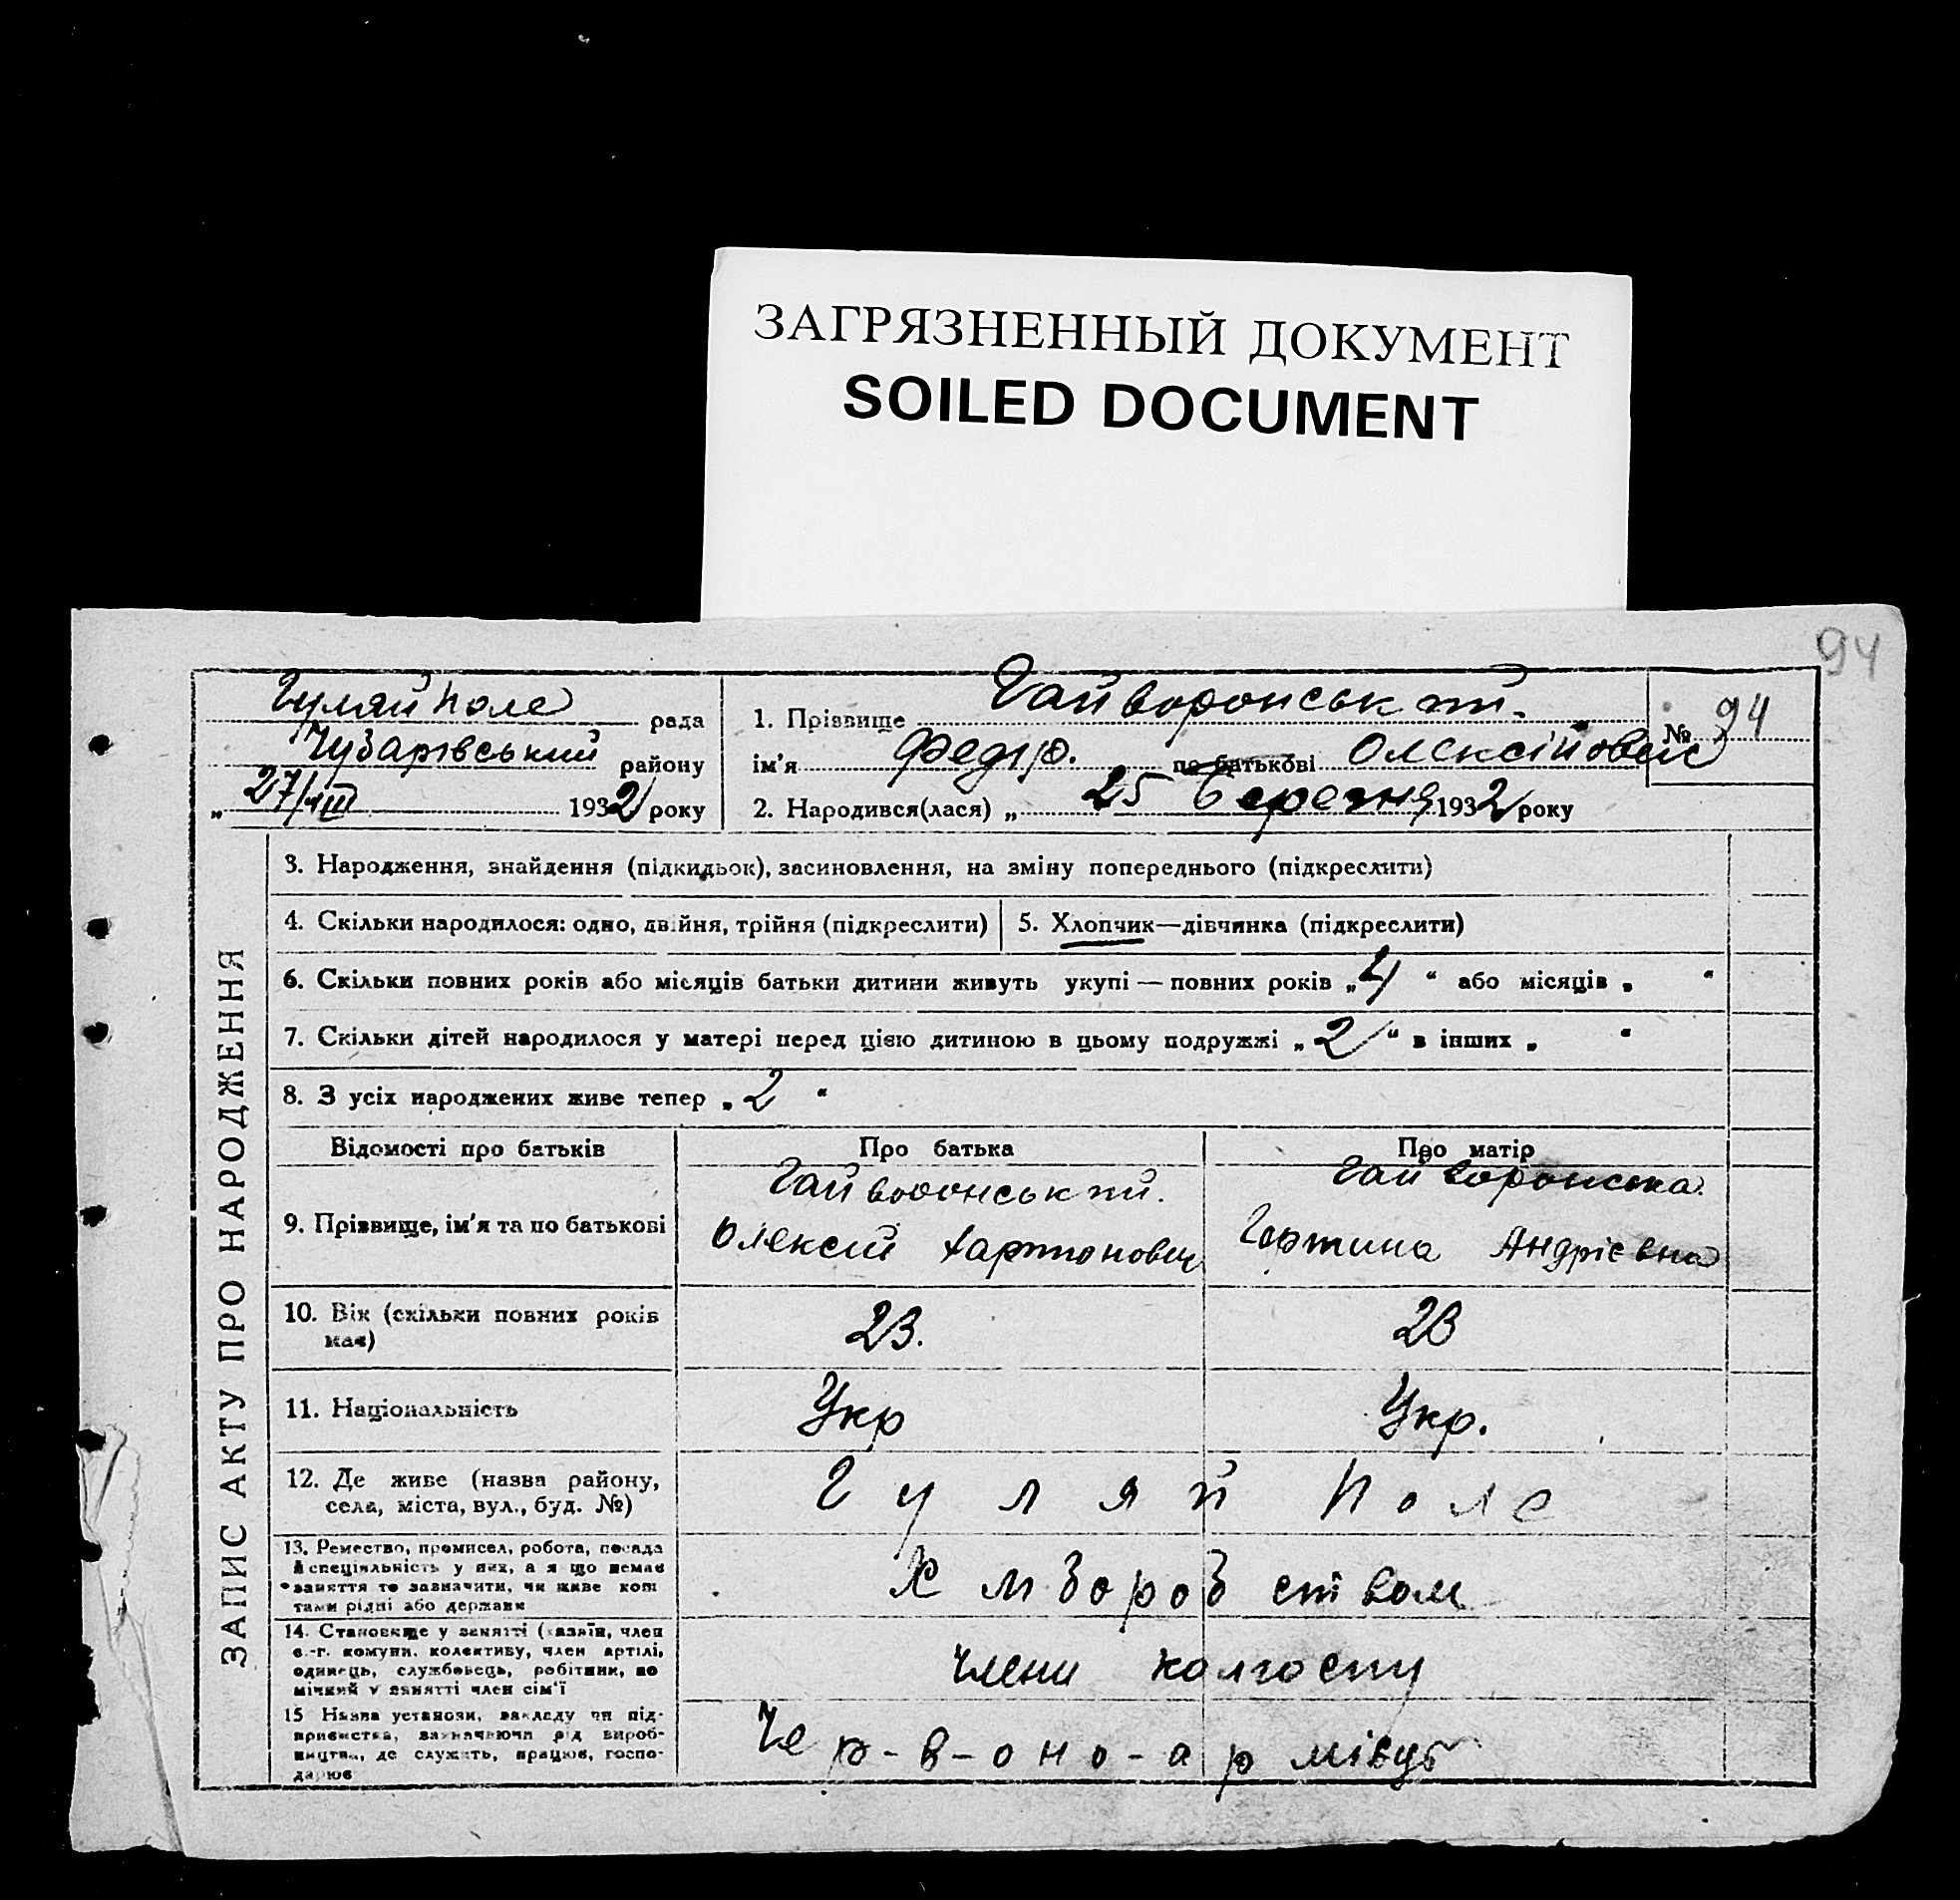 ЗАГРЯЗНЕННЫЙ ДОКУМЕНТ
SOILED DOCUMENT
94
Гуляй Поле рада
Чубарівський району
„ 27/III 1932 року
1. Прізвище Гайворонський.
ім'я Федір. по батькові Олексійович
№ 94
2. Народився(лася) „ 25 Березня 1932 року
ЗАПИС АКТУ ПРО НАРОДЖЕННЯ
3. Народження, знайдення (підкидьок), засиновлення, на зміну попереднього (підкреслити)
4. Скільки народилося: одно, двійня, трійня (підкреслити)
5. Хлопчик—дівчинка (підкреслити)
6. Скільки повних років або місяців батьки дитини живуть укупі — повних років „ 4 “ або місяців „ “
7. Скільки дітей народилося у матері перед цією дитиною в цьому подружжі „ 2 “ в інших „ “
8. З усіх народжених живе тепер „ 2 “
Відомості про батьків Про батька Про матір
9. Прізвище, ім'я та по батькові
Гайворонський.
Олексій Харитонович
Гайворонська.
Андрієвна
10. Вік (скільки повних років
має)
23. 23
11. Національність Укр Укр.
12. Де живе (назва району,
села, міста, вул., буд. №)
Гуляй Поле
13. Ремество, промисел, робота, посада
й спеціяльність у них, а якщо немає
заняття то зазначити, чи живе кош
тами рідні або держави
Хліборобством
14. Становище у занятті (хазяїн, член
с.-г. комуни, колективу, член артілі,
одинець, службовець, робітник, по
мічний у занятті член сім'ї
члени колгоспу
15 Назва установи, закладу чи під-
приємства, зазначаючи рід вироб-
ництва, де служить, працює, госпо-
дарює
Чер-в-оно-армієць